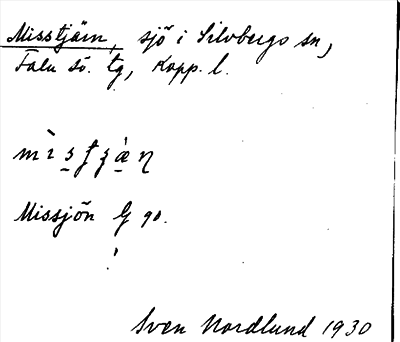 Misstjärn, sjö i Silvbergs sn,
Falu sö. tg, Kopp. l.
Missjön G 90.
Sven Nordlund 1930